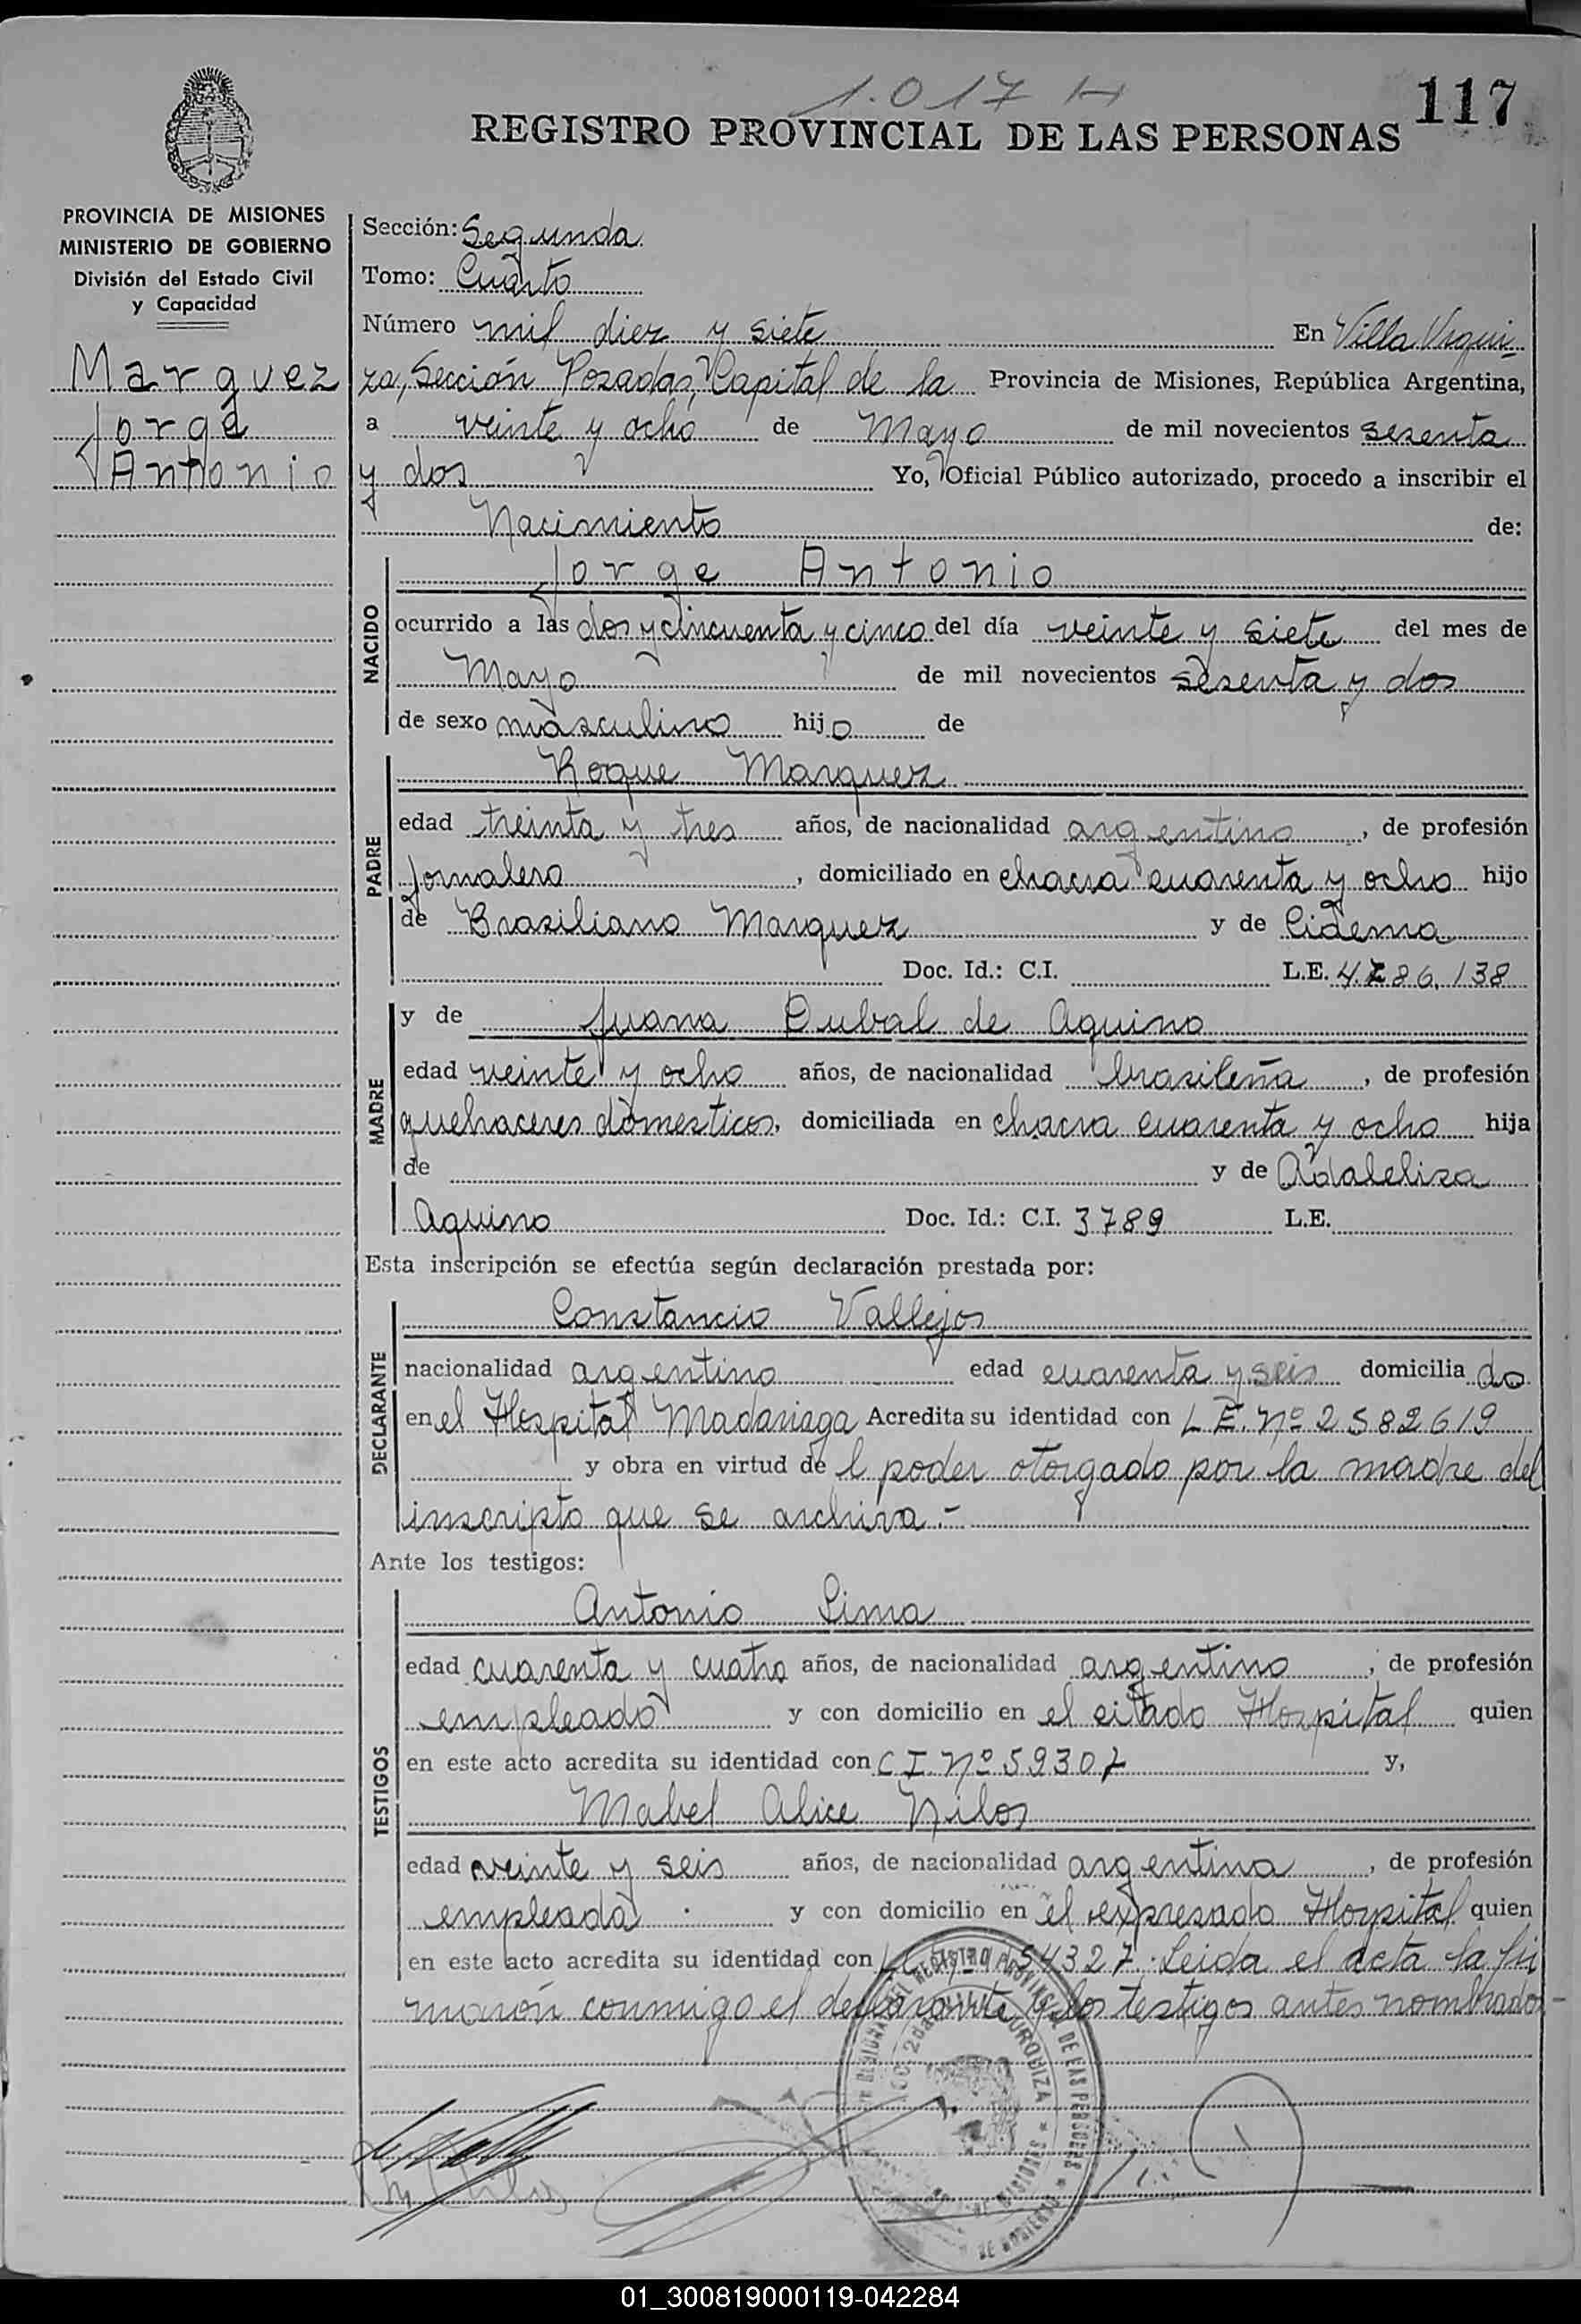 1.017 H
117
REGISTRO PROVINCIAL DE LAS PERSONAS
PROVINCIA DE MISIONES
MINISTERIO DE GOBIERNO
División del Estado Civil
y Capacidad
Marquez
Jorge
Antonio
Sección: Segunda
Tomo: Cuarto
Número mil diez y siete En Villa Urqui-
za, Sección Posadas, Capital de la Provincia de Misiones, República Argentina,
a veinte y ocho de Mayo de mil novecientos sesenta
y dos Yo, Oficial Público autorizado, procedo a inscribir el
Nacimiento de:
NACIDO
Jorge Antonio
ocurrido a las dos y cincuenta y cinco del día veinte y siete del mes de
Mayo de mil novecientos sesenta y dos
de sexo masculino hijo de
PADRE
Roque Marquez
edad treinta y tres años, de nacionalidad argentino, de profesión
jornalero, domiciliado en chacra cuarenta y ocho hijo
de Brasiliano Marquez y de Cidema
Doc. Id.: C.I. L.E. 4.786.138
MADRE
y de Juana Dubal de Aquino
edad veinte y ocho años, de nacionalidad brasileña, de profesión
quehaceres domesticos, domiciliada en chacra cuarenta y ocho hija
de y de Adaleliza
Aquino Doc. Id.: C.I. 3789 L.E.
Esta inscripción se efectúa según declaración prestada por:
DECLARANTE
Constancio Vallejos
nacionalidad argentino edad cuarenta y seis domiciliado
en el Hospital Madariaga Acredita su identidad con L.E. Nº 2582619
y obra en virtud del poder otorgado por la madre del
inscripto que se archiva.-
Ante los testigos:
TESTIGOS
Antonio Lima
edad cuarenta y cuatro años, de nacionalidad argentino, de profesión
empleado y con domicilio en el citado Hospital quien
en este acto acredita su identidad con C I. Nº 59307 y,
Mabel Alice Nilos
edad veinte y seis años, de nacionalidad argentina, de profesión
empleada y con domicilio en el expresado Hospital quien
en este acto acredita su identidad con 54327. Leida el acta la fir
maron conmigo el declarante y los testigos antes nombrados-
REGISTRO PROVINCIAL DE LAS PERSONAS
URQUIZA
01_300819000119-042284